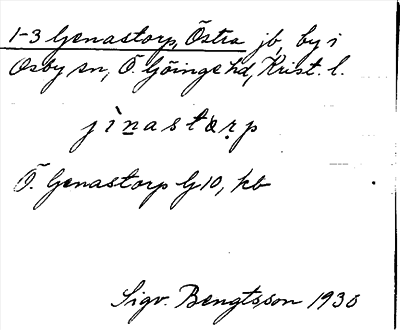 1-3 Genastorp, Östra jb, by i
Osby sn, Ö. Göinge hd, Krist. l.
jìnastɑrp
Ö. Genastorp G10, kb
Sigv. Bengtsson 1930